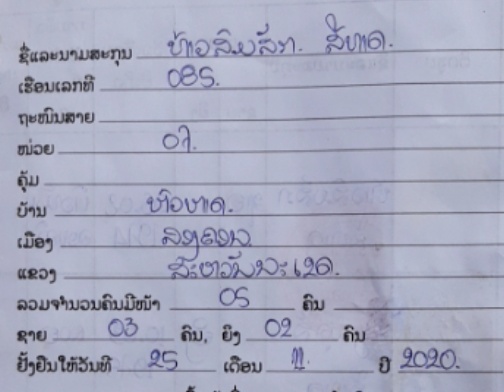 ຊື່ແລະນາມສະກຸນ ທ້າວສົມສັກ. ສີຫາດ.
ເຮືອນເລກທີ 085.
ຖະໜົນສາຍ
ໜ່ວຍ 07.
ຄຸ້ມ
ບ້ານ ຫົວຫາດ.
ເມືອງ ສອງຄອນ.
ແຂວງ ສະຫວັນນະເຂດ.
ລວມຈຳນວນຄົນມີໜ້າ 05 ຄົນ
ຊາຍ 03 ຄົນ, ຍິງ 02 ຄົນ
ຢັ້ງຢືນໃຫ້ວັນທີ 25 ເດືອນ 11. ປີ 2020.